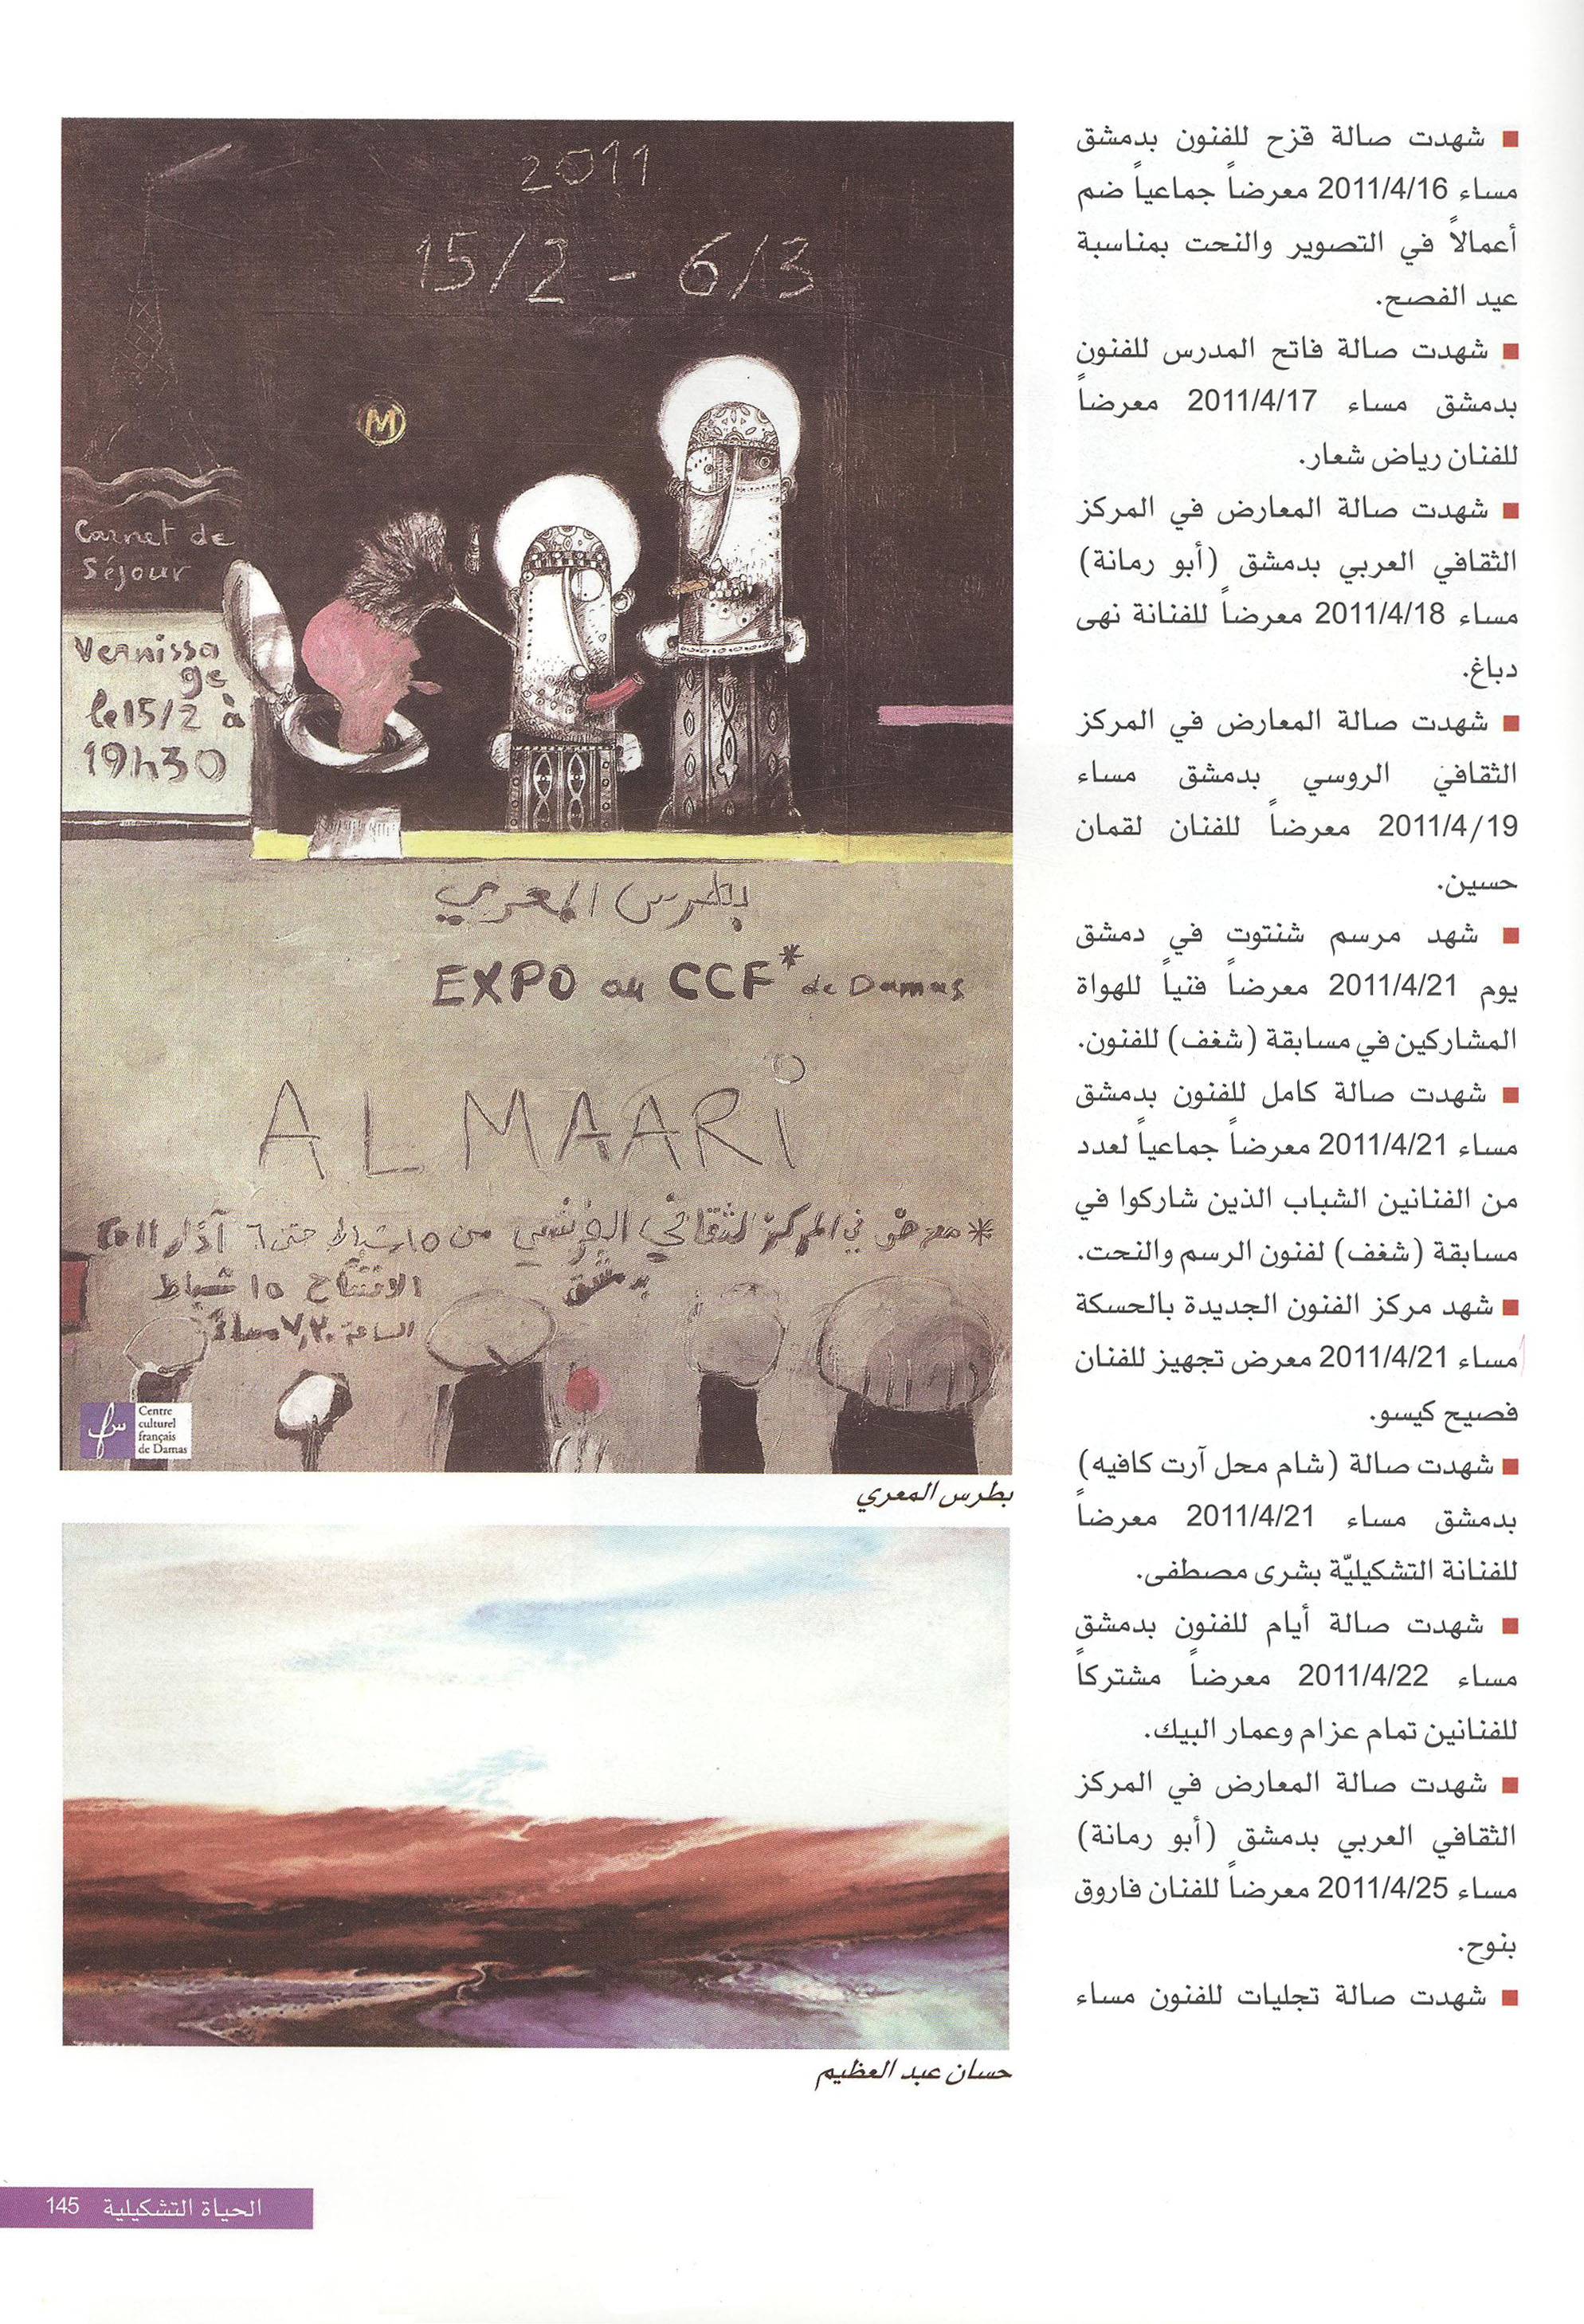 ■ شهدت صالة قزح للفنون بدمشق
مساء 2011/4/16 معرضاً جماعياً ضم
أعمالاً في التصوير والنحت بمناسبة
عيد الفصح.
■ شهدت صالة فاتح المدرس للفنون
بدمشق مساء 2011/4/17 معرضاً
للفنان رياض شعار.
■ شهدت صالة المعارض في المركز
الثقافي العربي بدمشق (أبو رمانة)
مساء 2011/4/18 معرضاً للفنانة نهى
دباغ.
■ شهدت صالة المعارض في المركز
الثقافي الروسي بدمشق مساء
2011/4/19 معرضاً للفنان لقمان
حسين.
■ شهد مرسم شنتوت في دمشق
يوم 2011/4/21 معرضاً فنياً للهواة
المشاركين في مسابقة (شغف) للفنون.
■ شهدت صالة كامل للفنون بدمشق
مساء 2011/4/21 معرضاً جماعياً لعدد
من الفنانين الشباب الذين شاركوا في
مسابقة (شغف) لفنون الرسم والنحت.
■ شهد مركز الفنون الجديدة بالحسكة
مساء 2011/4/21 معرض تجهيز للفنان
فصيح كيسو.
■ شهدت صالة (شام محل آرت كافيه)
بدمشق مساء 2011/4/21 معرضاً
للفنانة التشكيليّة بشرى مصطفى.
■ شهدت صالة أيام للفنون بدمشق
مساء 2011/4/22 معرضاً مشتركاً
للفنانين تمام عزام وعمار البيك.
■ شهدت صالة المعارض في المركز
الثقافي العربي بدمشق (أبو رمانة)
مساء 2011/4/25 معرضاً للفنان فاروق
بنوح.
■ شهدت صالة تجليات للفنون مساء
2011
15/2 - 6/3
M
Carnet de
Séjour
Vernissa
ge
le 15/2 à
19h30
بطرس المعري
EXPO au CCF* de Damas
AL MAARi
* معرض في المركز الثقافي الفرنسي من ١٥ شباط حتى ٦ آذار ٢٠١١
بدمشق
الافتتاح ١٥ شباط
الساعة ٧,٣٠ مساءً
Centre
culturel
français
de Damas
بطرس المعري
حسان عبد العظيم
الحياة التشكيلية 145